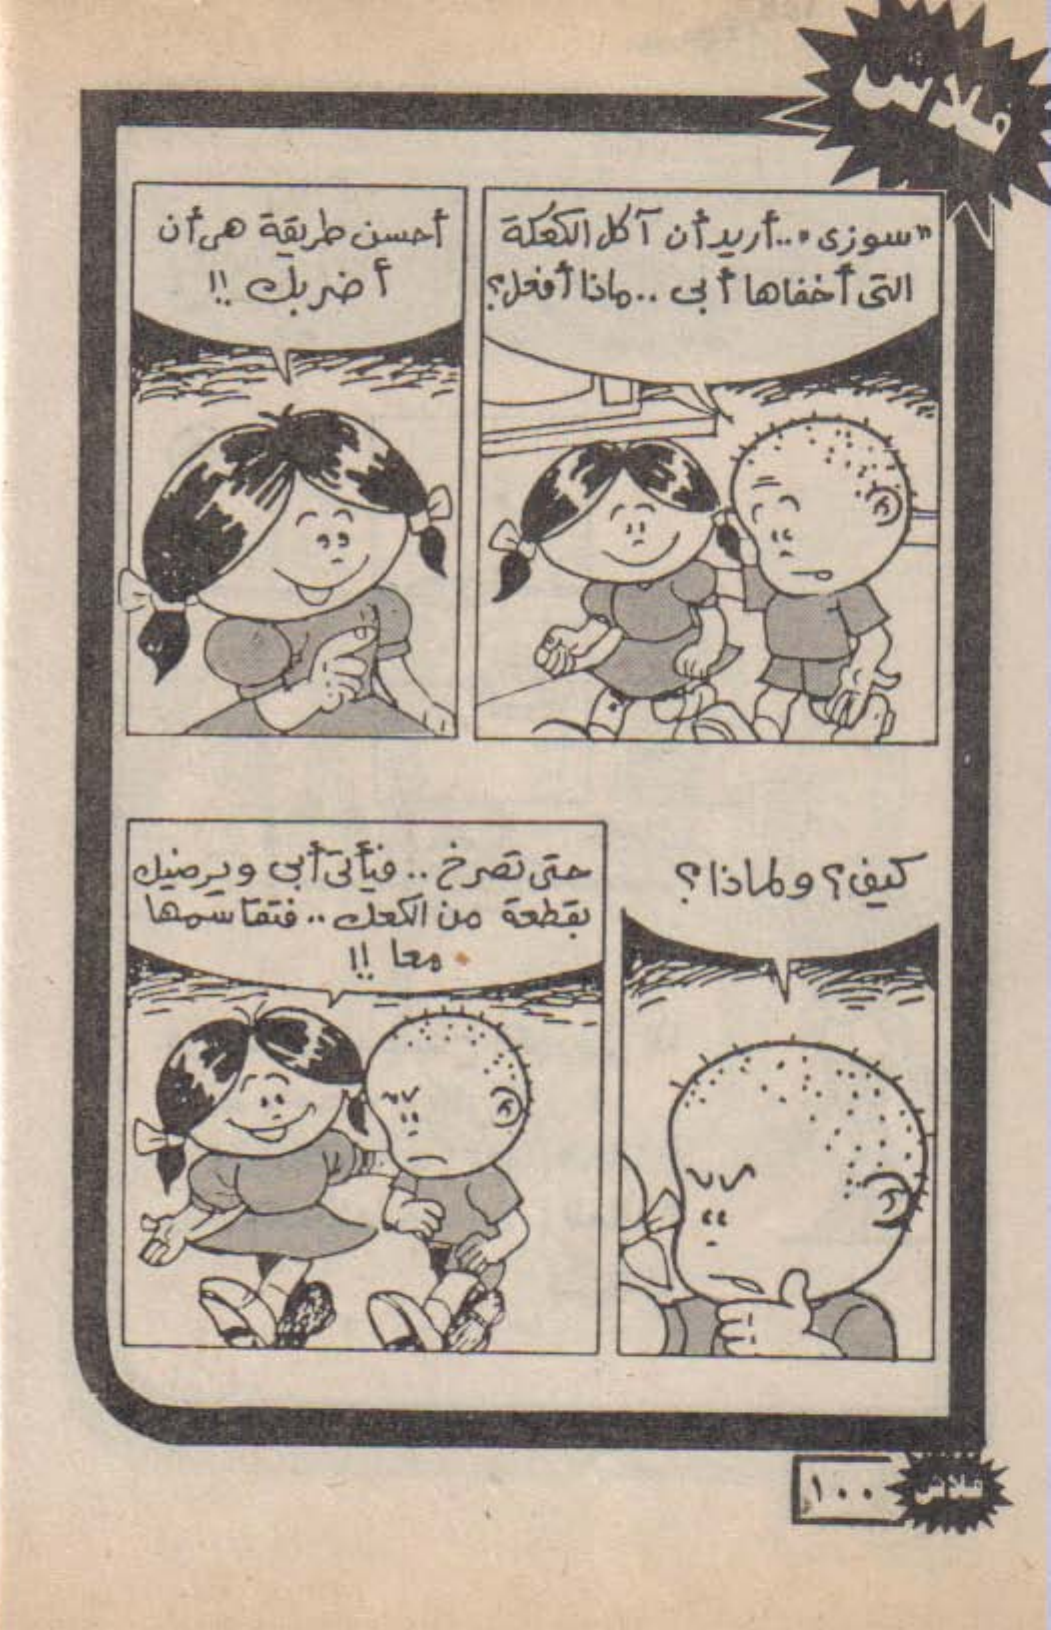 فلاش
"سوزى"..أريد أن آكل الكعكة
التى أخفاها أبى ..ماذا أفعل؟
أحسن طريقة هى أن
أضربك !!
كيف؟ ولماذا؟
حتى تصرخ .. فيأتى أبى ويرضيك
بقطعة من الكعك .. فنتقاسمها
معا !!
فلاش
١٠٠